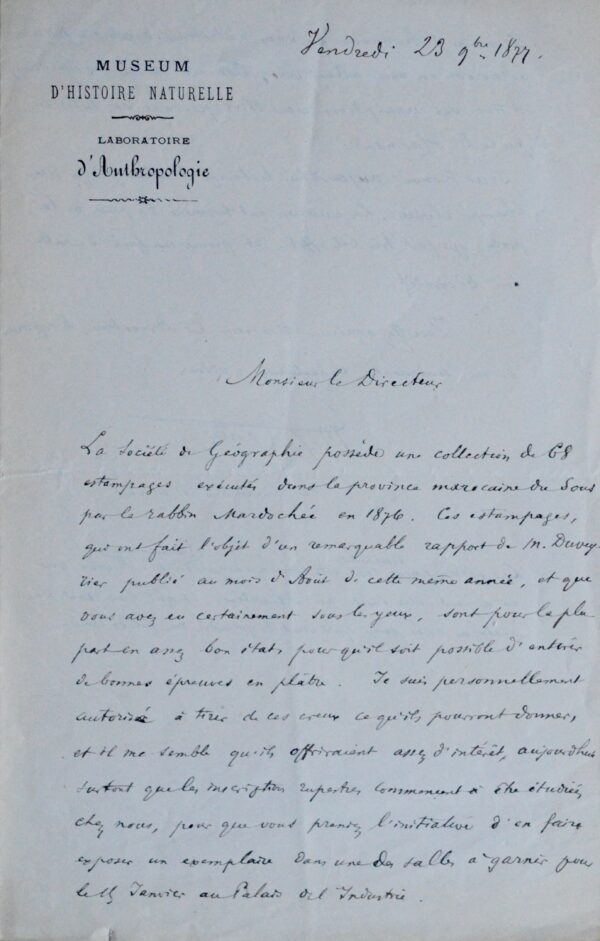 Vendredi 23 9bre 1877.
MUSEUM
D'HISTOIRE NATURELLE
LABORATOIRE
d'Anthropologie
Monsieur le Directeur
La Société de Géographie possède une collection de 68
estampages exécutés dans la province marocaine du Sous
par le rabbin Mardochée en 1876. Ces estampages,
qui ont fait l'objet d'un remarquable rapport de M. Duvey-
rier publié au mois d'Août de cette même année, et que
vous avez eu certainement sous les yeux, sont pour la plu
part en assez bon états pour qu'il soit possible d'en tirer
de bonnes épreuves en plâtre. Je suis personnellement
autorisé à tirer de ces creux ce qu'ils pourront donner,
et il me semble qu'ils offriraient assez d'intérêt, aujourd'hui
surtout que les inscriptions rupestres commencent à être étudiées
chez nous, pour que vous preniez l'initiative d'en faire
exposer un exemplaire dans une des salles à garnir pour
le 15 Janvier au Palais de l'Industrie.